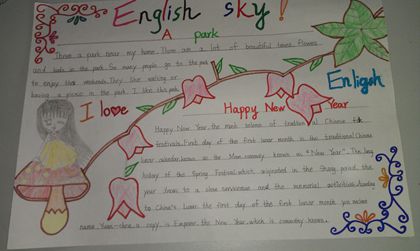 English sky!
A park
There a park near my home. There are a lot of beautiful trees, flowers
and birds in the park. So many people go to the park
to enjoy their weekends. They like walking or
having a picnic in the park. I like this park.
I love
Enligsh
Happy New Year
Happy New Year, the most solemn of traditional Chinese folk
festivals. First day of the first lunar month is the traditional Chinese
lunar calendar, known as the Mom, commonly known as "New Year". The long
history of the Spring Festival, which originated in the Shang period, the
year to a close and the memorial activities. According
to China's Lunar the first day of the first lunar month
name Yuan- is Emperor, the New Year, which is commonly known.